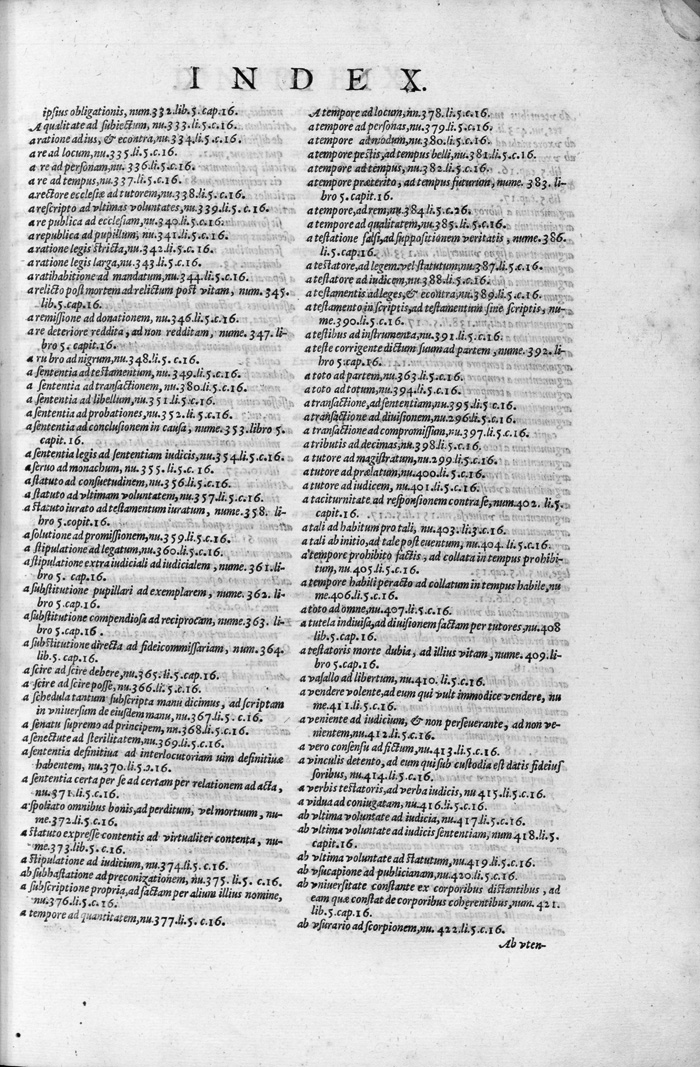 INDEX.
ipsius obligationis, num.332.lib.5.cap.16.
A qualitate ad subiectum, nu.333.li.5.c.16.
a ratione ad ius, & econtra, nu.334.li.5.c.16.
a re ad locum, nu.335.li.5.c.16.
a re ad personam, nu.336.li.5.c.16.
a re ad tempus, nu.337.li.5.c.16.
a rectore ecclesiæ ad tutorem, nu.338.li.5.c.16.
a rescripto ad vltimas voluntates, nu.339.li.5.c.16.
a re publica ad ecclesiam, nu.340.li.5.c.16.
a republica ad pupillum, nu.341.li.5.c.16.
a ratione legis stricta, nu.342.li.5.c.16.
a ratione legis larga, nu.343.li.5.c.16.
a ratihabitione ad mandatum, nu.344.li.5.c.16.
a relicto post mortem ad relictum post vitam, num. 345.
lib.5.cap.16.
a remissione ad donationem, nu.346.li.5.c.16.
a re deteriore reddita, ad non redditam, nume. 347. li-
bro 5. capit.16.
a rubro ad nigrum, nu.348.li.5.c.16.
a sententia ad testamentum, nu.349.li.5.c.16.
a sententia ad transactionem, nu.380.li.5.c.16.
a sententia ad libellum, nu.351.li.5.c.16.
a sententia ad probationes, nu.352.li.5.c.16.
a sententia ad conclusionem in causa, nume.353.libro 5.
capit.16.
a sententia legis ad sententiam iudicis, nu.354.li.5.c.16.
a seruo ad monachum, nu.355.li.5.c.16.
a statuto ad consuetudinem, nu.356.li.5.c.16.
a statuto ad vltimam voluntatem, nu.357.li.5.c.16.
a statuto iurato ad testamentum iuratum, nume.358. li-
bro 5.copit.16.
a solutione ad promissionem, nu.359.li.5.c.16.
a stipulatione ad legatum, nu.360.li.5.c.16.
a stipulatione extra iudiciali ad iudicialem, nu.361.li-
bro 5. cap.16.
a substitutione pupillari ad exemplarem, nume. 362. li-
bro 5.cap.16.
a substitutione compendiosa ad reciprocam, nume.363. li-
bro 5.cap.16.
a substitutione directa ad fideicommissariam, num.364.
lib.5.cap.16.
a scire ad scire debere, nu.365.li.5.cap.16.
a scire ad scire posse, nu.366.li.5.c.16.
a schedula tantum subscripta manu dicimus, ad scriptam
in vniuersum de eiusdem manu, nu.367.li.5. c.16.
a senatu supremo ad principem, nu.368.li.5.c.16.
a senectute ad sterilitatem, nu.369.li.5.c.16.
a sententia definitiua ad interlocutoriam uim definitiuæ
habentem, nu.370.li.5.c.16.
a sententia certa per se ad certam per relationem ad acta,
nu.371.li.5.c.16.
a spoliato omnibus bonis, ad perditum, vel mortuum, nu-
me.372.li.5.c.16.
a statuto expresse contentis ad virtualiter contenta, nu-
me.373.lib.5.c.16.
a stipulatione ad iudicium, nu.374.li.5.c.16.
ab subhastatione ad preconizationem, nu.375. li.5. c.16.
a subscriptione propria, ad factam per alium illius nomine,
nu.376.li.5.c.16.
a tempore ad quantitatem, nu.377.li.5.c.16.
A tempore ad locum, nu.378.li.5.c.16.
a tempore ad personas, nu.379.li.5.c.16.
a tempore ad modum, nu.380.li.5.c.16.
a tempore pestis, ad tempus belli, nu.381.li.5.c.16.
a tempore ad tempus, nu.382.li.5.c.16.
a tempore præterito, ad tempus futurum, nume. 383. li-
bro 5.capit.16.
a tempore, ad rem, nu.384.li.5.c.26.
a tempore ad qualitatem, nu.385.li.5.c.16.
a testatione falsi, ad suppositionem veritatis, nume.386.
li.5.cap.16.
a testatore, ad legem, vel statutum, nu.387.li.5.c.16.
a testatore ad iudicem, nu.388.li.5.c.16.
a testamentis ad leges, & econtra, nu.389.li.5.c.16.
a testamento in scriptis, ad testamentum sine scriptis, nu-
me.390.li.5.c.16.
a testibus ad instrumenta, nu.391.li.5.c.16.
a teste corrigente dictum suum ad partem, nume.392.li-
bro 5.cap.16.
a toto ad partem, nu.363.li.5.c.16.
a toto ad totum, nu.394.li.5.c.16.
a transactione, ad sententiam, nu.395.li.5.c.16.
a transactione ad diuisionem, nu.296.li.5.c.16.
a transactione ad compromissum, nu.397.li.5.c.16.
a tributis ad decimas, nu.398.li.5.c.16.
a tutore ad magistratum, nu.299.li.5.c.16.
a tutore ad prælatum, nu.400.li.5.c.16.
a tutore ad iudicem, nu.401.li.5.c.16.
a taciturnitate ad responsionem contra se, num.402. li.5.
capit.16.
a tali ad habitum pro tali, nu.403.li.5.c.16.
a tali ab initio, ad tale post euentum, nu.404.li.5.c.16.
a tempore prohibito factis, ad collata in tempus prohibi-
tum, nu.405.li.5.c.16.
a tempore habili peracto ad collatum in tempus habile, nu
me.406.li.5.c.16.
a toto ad omne, nu.407.li.5.c.16.
a tutela indiuisa, ad diuisionem factam per tutores, nu.408
lib.5.cap.16.
a testatoris morte dubia, ad illius vitam, nume.409.li-
bro 5.cap.16.
a vasallo ad libertum, nu.410.li.5.c.16.
a vendere volente, ad eum qui vult immodice vendere, nu
me.411.li.5.c.16.
a veniente ad iudicium, & non perseuerante, ad non ve-
nientem, nu.412.li.5.c.16.
a vero consensu ad fictum, nu.413.li.5.c.16.
a vinculis detento, ad eum qui sub custodia est datis fideius
soribus, nu.414.li.5.c.16.
a verbis testatoris, ad verba iudicis, nu.415.li.5.c.16.
a vidua ad coniugatam, nu.416.li.5.c.16.
ab vltima voluntate ad iudicia, nu.417.li.5.c.16.
ab vltima voluntate ad iudicis sententiam, num.418.li.5.
capit.16.
ab vltima voluntate ad statutum, nu.419.li.5.c.16.
ab vsucapione ad publicianam, nu.420.li.5.c.16.
ab vniuersitate constante ex corporibus distantibus, ad
eam quæ constat de corporibus coherentibus, num.421.
lib.5.cap.16.
ab vsurario ad scorpionem, nu. 422.li.5.c.16.
Ab vten-